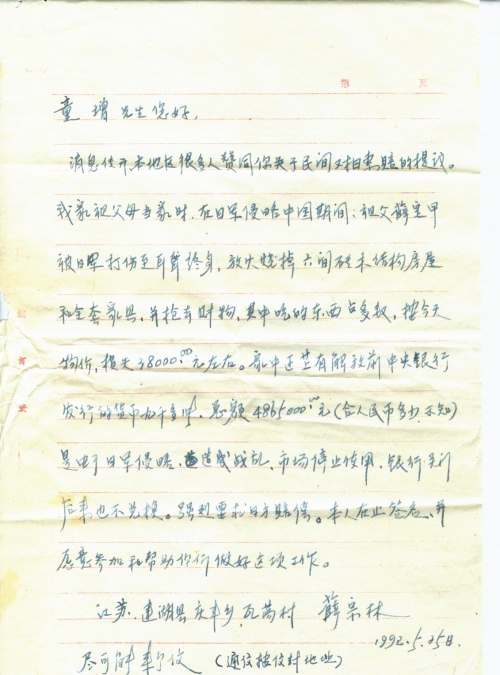 第 页
童增先生您好,
消息传开本地区很多人赞同你关于民间对日索赔的提议。
我家祖父母当家时,在日军侵略中国期间:祖父薛里甲
被日军打伤至耳聋终身,放火烧掉六间砖木结构房屋
和全套家具,并抢去财物,其中吃的东西占多数,按今天
物价,损失38000.00元左右。家中还共有解放前中央银行
发行的货币 总额4865000.00元(合人民币多少不知)
是由于日军侵略,造成战乱,市场停止使用,银行关门
后来也不兑换。强烈要求日方赔偿。本人在此签名,并
愿意参加和帮助你们做好这项工作。
江苏.建湖县庆丰乡 村 薛宗林
1992.5.25日.
尽可能来信 (通信按信封地址)